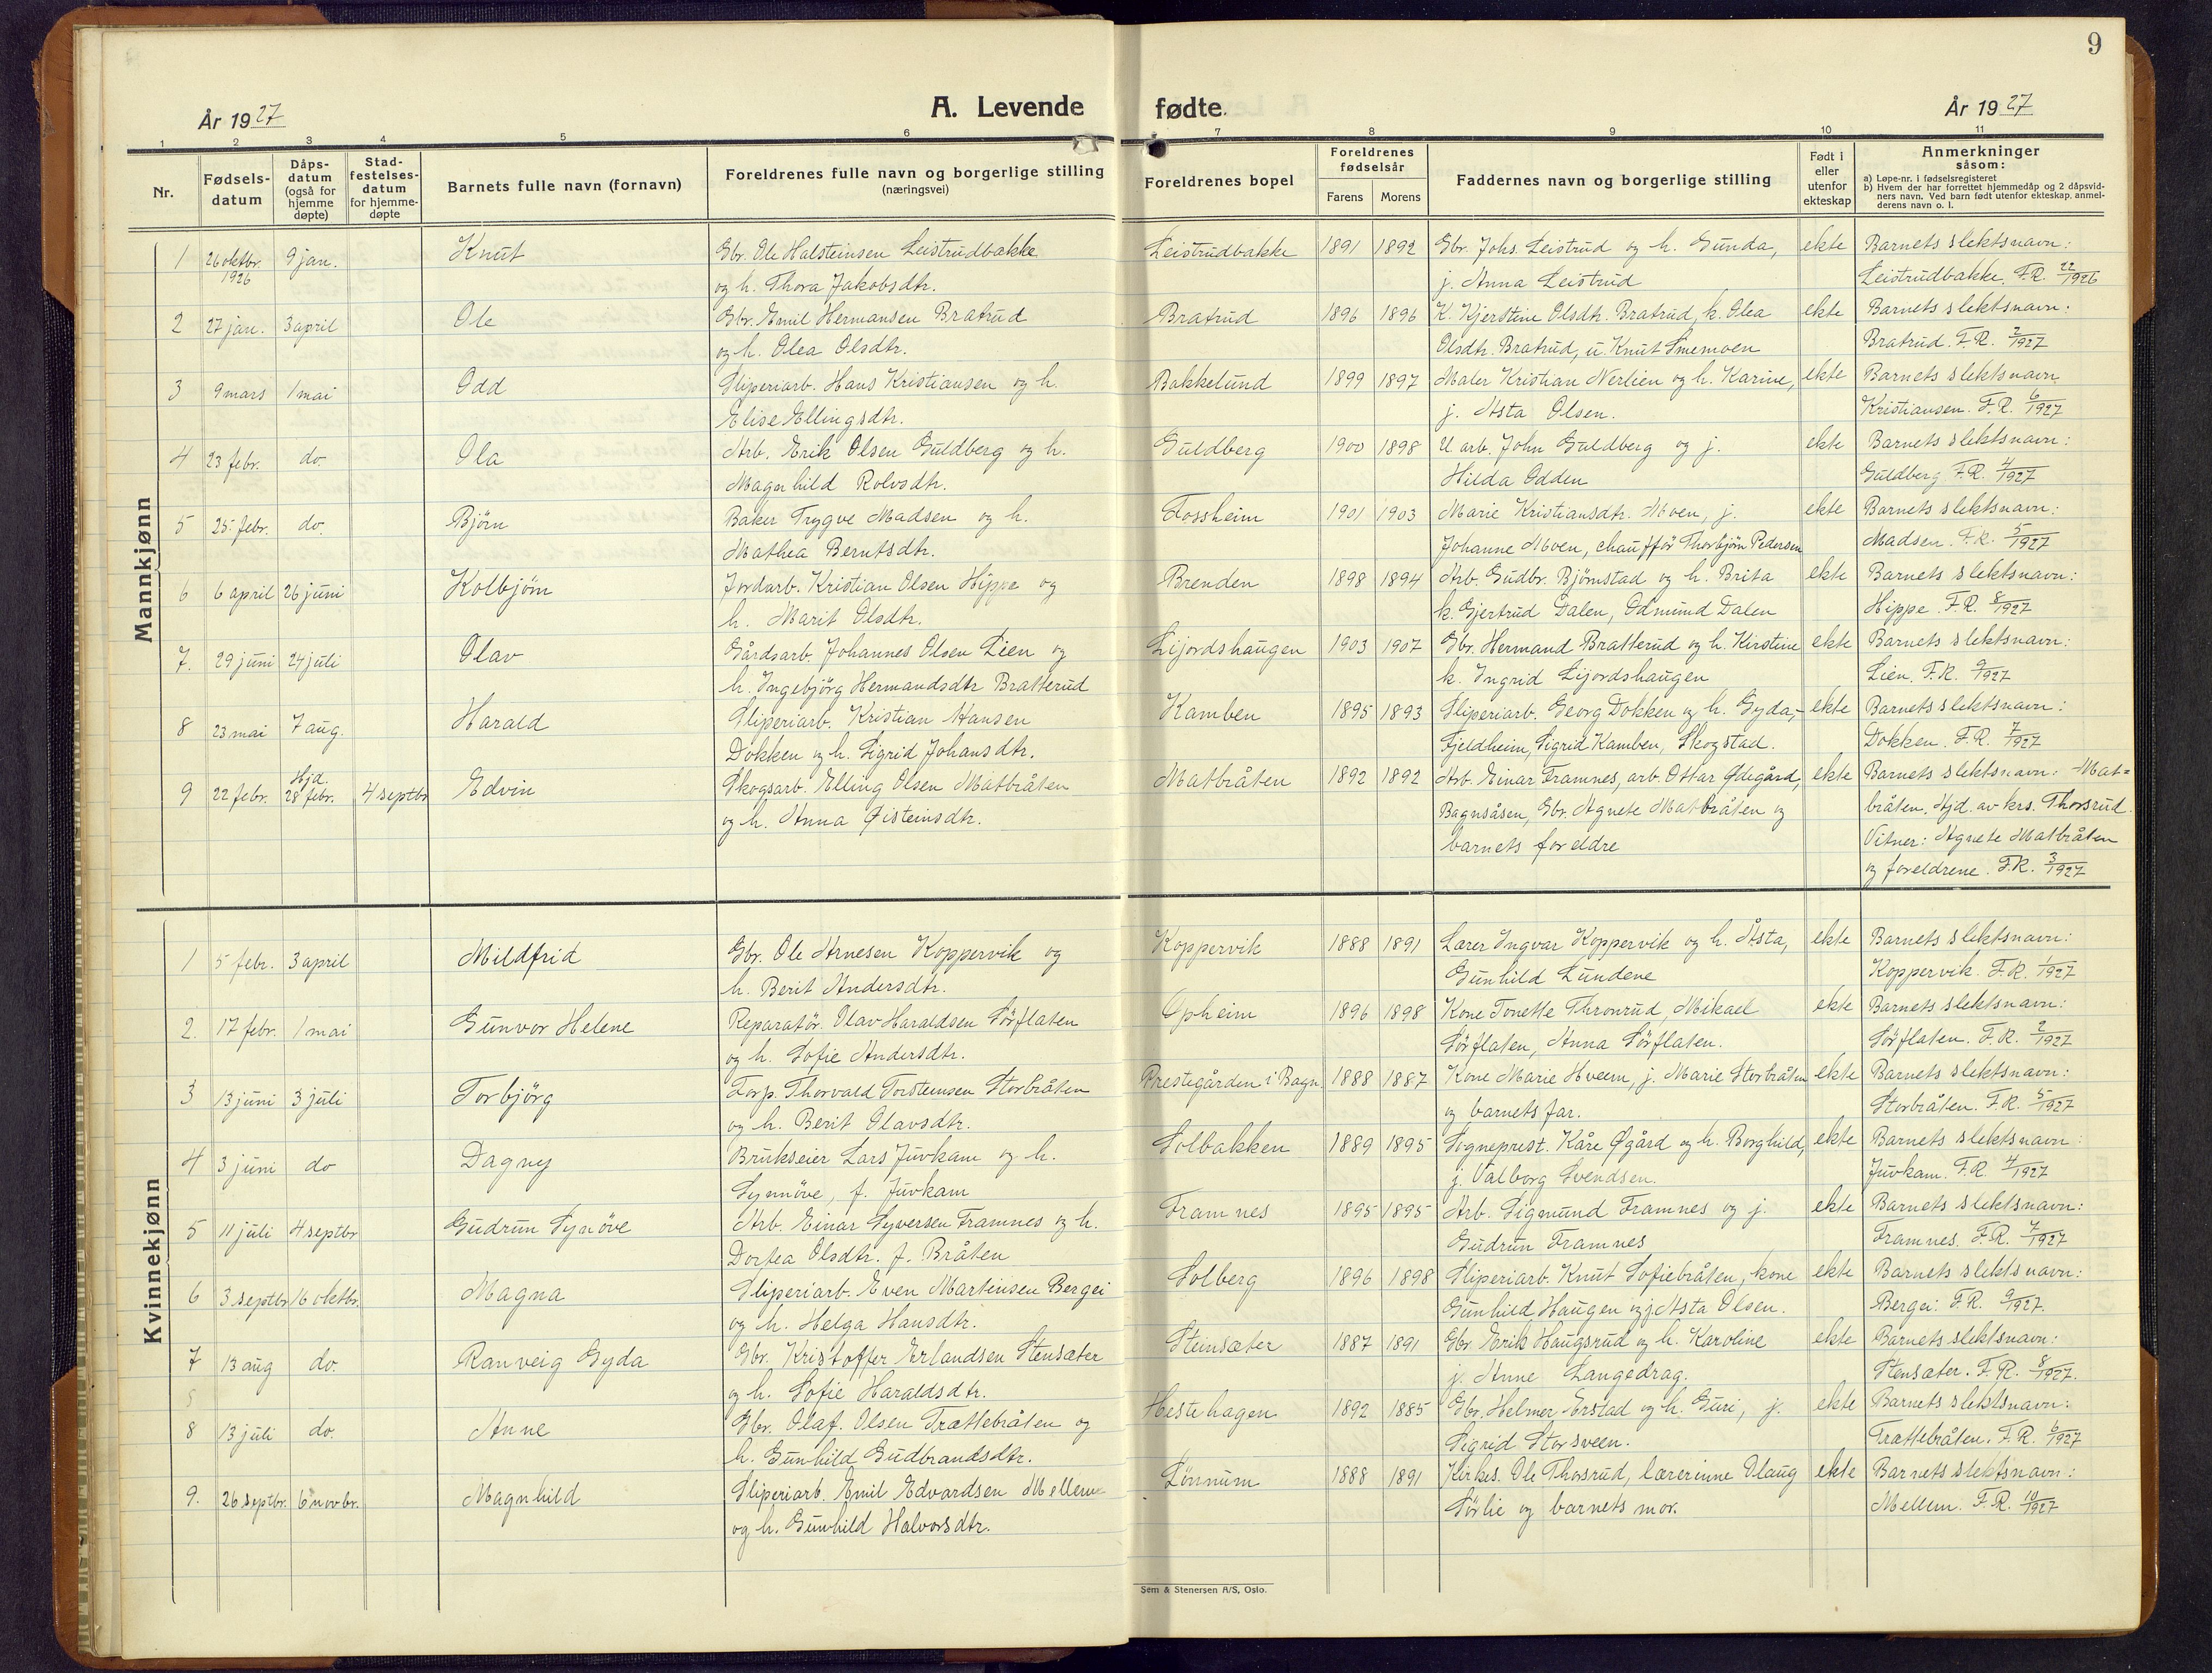 9
År 1927
A. Levende fødte.
År 1927
1 2 3 4 5 6 7 8 9 10 11
Nr.
Fødsels-
datum
Dåps-
datum
(også for
hjemme
døpte)
Stad-
festelses-
datum
for hjemme-
døpte
Barnets fulle navn (fornavn)
Foreldrenes fulle navn og borgerlige stilling
(næringsvei)
Foreldrenes bopel
Foreldrenes
fødselsår
Farens Morens
Faddernes navn og borgerlige stilling
Født i
eller
utenfor
ekteskap
Anmerkninger
såsom:
a) Løpe-nr. i fødselsregisteret
b) Hvem der har forrettet hjemmedåp og 2 dåpsvid-
ners navn. Ved barn født utenfor ekteskap, anmel-
derens navn o. l.
Mannkjønn
1 26 oktbr. 9 jan. Knut Gbr. Ole Halsteinsen Leistrudbakke Leistrudbakke 1891 1892 Gbr. Johs. Leistrud og h. Gunda, ekte Barnets slektsnavn:
1926 og h. Thora Jakobsdtr. j. Anna Leistrud Leistrudbakke. F.R. 22/1926
2 27 jan. 3 april Ole Gbr. Emil Hermansen Bratrud Bratrud 1896 1896 K. Kjerstine Olsdtr. Bratrud, k. Olea ekte Barnets slektsnavn:
og h. Olea Olsdtr. Olsdtr. Bratrud, u. Knut Smemoen Bratrud. F.R. 2/1927
3 9 mars 1 mai Odd Sliperiarb. Hans Kristiansen og h. Bakkelund 1899 1897 Maler Kristian Nerlien og h. Karine, ekte Barnets slektsnavn
Elise Ellingsdtr. j. Asta Olsen. Kristiansen. F.R. 6/1927
4 23 febr. do. Ola Arb. Erik Olsen Guldberg og h. Guldberg 1900 1898 U. arb. John Guldberg og j. ekte Barnets slektsnavn:
Magnhild Rolvsdtr. Hilda Odden Guldberg F.R. 4/1927
5 25 febr. do. Björn Baker Trygve Madsen og h. Fossheim 1901 1903 Marie Kristiansdtr. Moen, j. ekte Barnets slektsnavn:
Mathea Berntsdtr. Johanne Moen, chaufför Thorbjörn Pedersen Madsen. F.R. 5/1927
6 6 april 26 juni Kolbjörn Jordarb. Kristian Olsen Hippe og Brenden 1898 1894 Arb. Gudbr. Björnstad og h. Brita ekte Barnets slektsnavn:
h. Marit Olsdtr. k. Gjertrud Dalen, Odmund Dalen Hippe. F.R. 8/1927
7. 29 juni 24 juli Olav Gårdsarb. Johannes Olsen Lien og Lijordshaugen 1903 1907 Gbr. Hermand Bratterud og h. Kirstine ekte Barnets slektsnavn:
h. Ingebjörg Hermandsdtr Bratterud k. Ingrid Lijordshaugen Lien. F.R. 9/1927
8 23 mai 7 aug. Harald Sliperiarb. Kristian Hansen Kamben 1895 1893 Sliperiarb. Georg Dokken og h. Gyda,- ekte Barnets slektsnavn:
Dokken og h. Sigrid Johansdtr. Fjeldheim, Sigrid Kamben, Skogstad. Dokken. F.R. 7/1927
9 22 febr. Hjd. 28 febr. 4 septbr Edvin Skogsarb. Elling Olsen Matbråten Matbråten 1892 1892 Arb. Einar Framnes, arb. Ottar Ødegård, ekte Barnets slektsnavn: Mat=
og h. Anna Øisteinsdtr. Bagnsåsen, Gbr. Agnete Matbråten og bråten. Hjd. av krs. Thorsrud.
barnets foreldre Vitner: Agnete Matbråten
og foreldrene. F.R. 3/1927
Kvinnekjønn
1 5 febr. 3 april Mildfrid Gbr. Ole Arnesen Koppervik og Koppervik 1888 1891 Lærer Ingvar Koppervik og h. Åsta, ekte Barnets slektsnavn:
h. Berit Andersdtr. Gunhild Lundene Koppervik. F.R. 1/1927
2. 17 febr. 1 mai Gunvor Helene Reparatör. Olav Haraldsen Sörflaten Opheim 1896 1898 Kone Tonette Thronrud, Mikael ekte Barnets slektsnavn:
og h. Sofie Andersdtr. Sörflaten, Anna Sörflaten. Sörflaten. F.R. 2/1927
3 13 juni 3 juli Torbjörg Forp. Thorvald Torsteinsen Storbråten Prestegården i Bagn 1888 1887 Kone Marie Hveem, j. Marie Storbråten ekte Barnets slektsnavn:
og h. Berit Olavsdtr. og barnets far. Storbråten. F.R. 5/1927
4 3 juni do Dagny Brukseier Lars Juvkam og h. Solbakken 1889 1895 Sogneprest. Kåre Øgård og h. Borghild, ekte Barnets slektsnavn:
Synnöve, f. Juvkam j. Valborg Svendsen. Juvkam. F.R. 4/1927
5 11 juli 4 septbr Gudrun Synöve Arb. Einar Syversen Framnes og h. Framnes 1895 1895 Arb. Sigmund Framnes og j. ekte Barnets slektsnavn:
Dortea Olsdtr. f. Bråten Gudrun Framnes Framnes. F.R. 7/1927
6 3 septbr 16 oktbr. Magna Sliperiarb. Even Martinsen Bergei Solberg 1896 1898 Sliperiarb. Knut Sofiebråten, kone ekte Barnets slektsnavn:
og h. Helga Hansdtr. Gunhild Haugen og j Asta Olsen. Bergei. F.R. 9/1927.
7 13 aug do. Ranveig Gyda Gbr. Kristoffer Erlandsen Stensæter Steinsæter 1887 1891 Gbr. Erik Haugsrud og h. Karoline ekte Barnets slektsnavn:
og h. Sofie Haraldsdtr. j. Anne Langedrag. Stensæter. F.R. 8/1927.
8 13 juli do. Anne Gbr. Olaf. Olsen Trættebråten og Hestehagen 1892 1885 Gbr. Helmer Erstad og h. Guri, j. ekte Barnets slektsnavn:
h. Gunhild Gudbrandsdtr. Sigrid Storsveen. Trættebråten. F.R. 6/1927
9. 26 septbr. 6 novbr. Magnhild Sliperiarb. Emil Edvardsen Mellem Lönnum 1888 1891 Kirkes. Ole Thorsrud, lærerinne Olaug ekte Barnets slektsnavn:
og h. Gunhild Halvorsdtr. Sörlie og barnets mor. Mellem. F.R. 10/1927
Sem & Stenersen A/S, Oslo.